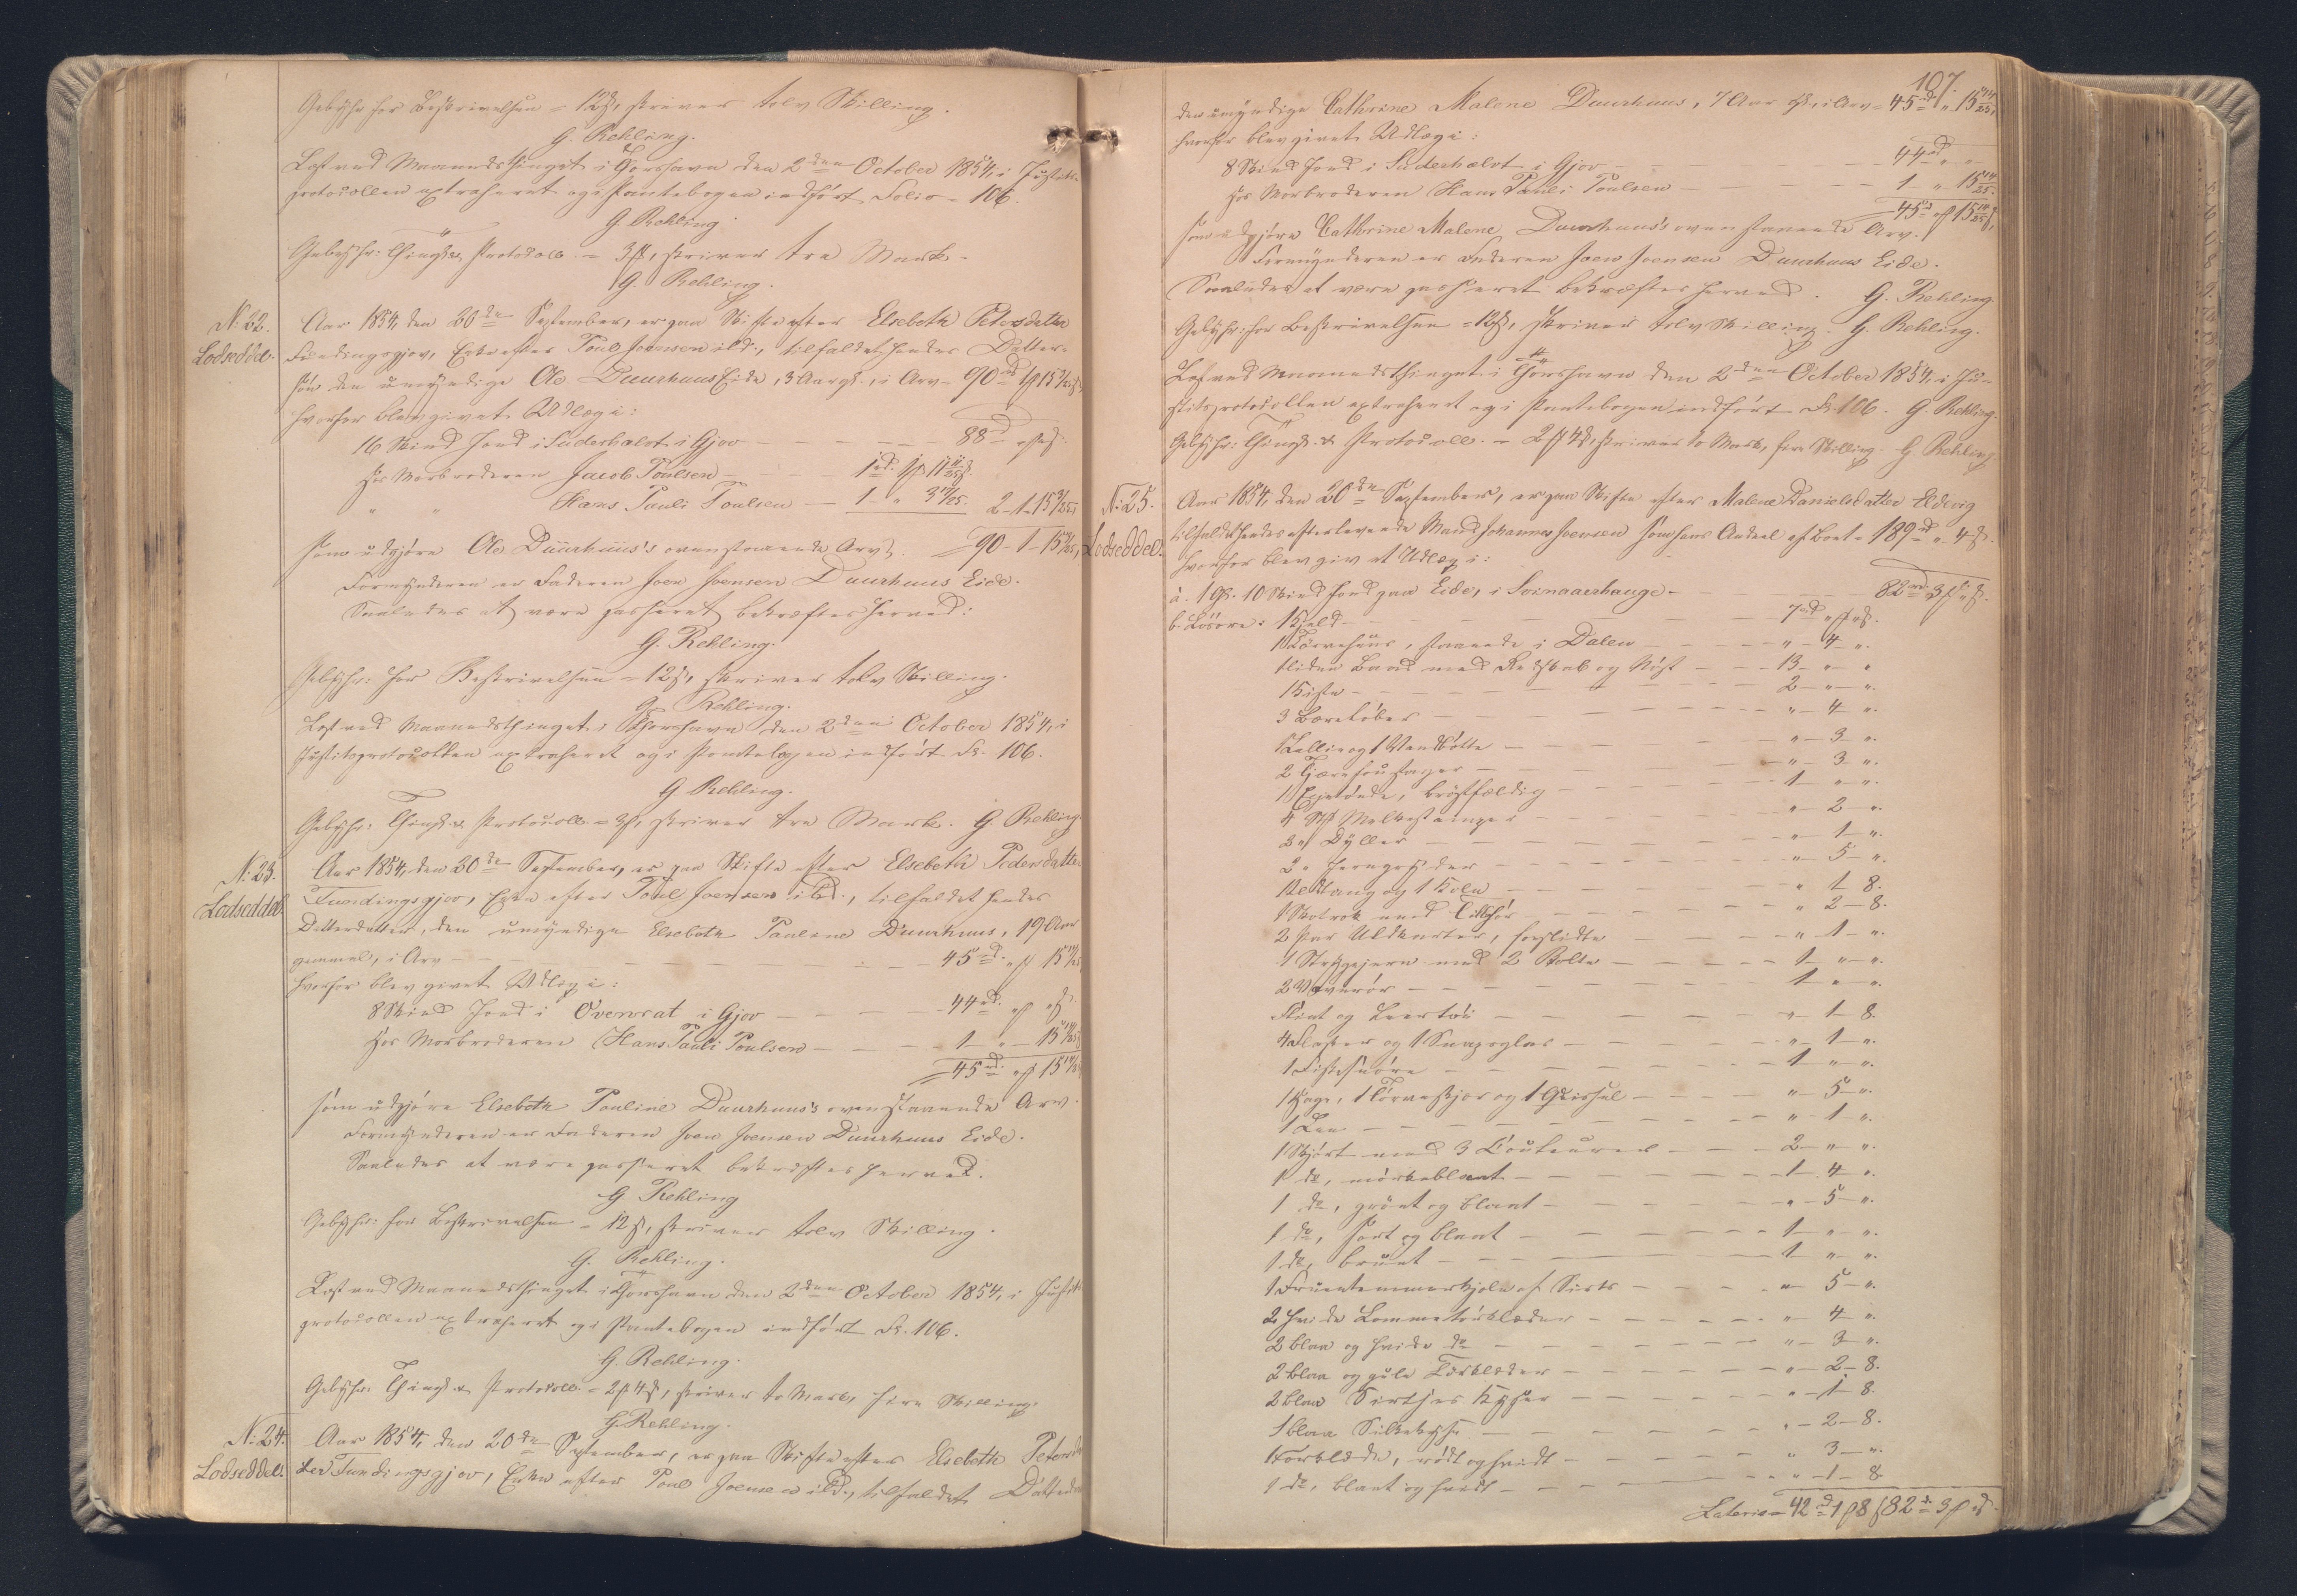 Gebyhr for Beskrivelsen = 12 s, skriver tolv Skilling.
G. Rehling.
Læst ved Maanedsthinget i Thorshavn den 2den October 1854, i Justits-
protocollen extraheret og i Pantebogen indført Folio 106.
G. Rehling.
Gebyhr: Thingl. & Protocoll. = 3 ſ, skriver tre Mark.
G. Rehling.
N: 22.
Lodseddel.
Aar 1854, den 20de September, er paa Skifte efter Elsebeth Petersdatter
Fundingsgjov, Enke efter Poul Joensen ibd., tilfaldet hendes Datter-
søn den umyndige Ole Duurhuus Eide, 3 Aar gl., i Arv = 90 rd 1 15
hvorfor blev givet Udlæg i:
16 Skind Jord i Suderhalvt i Gjov — 88 rd
Hos Morbroderen Jacob Poulsen — 1 rd. 1 11
" " Hans Pauli Poulsen — 1 - " 3 2-1-15
som udgjøre Ole Duurhuus's ovenstaaende Arv. 90-1-15
Formynderen er Faderen Joen Joensen Duurhuus Eide.
Saaledes at være passeret bekræftes herved:
G. Rehling.
Gebyhr: for Beskrivelsen = 12 s, skriver tolv Skilling.
G. Rehling.
Læst ved Maanedsthinget i Thorshavn den 2den October 1854, i
Justitsprotocollen extraheret og i Pantebogen indført Fol. 106.
G. Rehling.
Gebyhr: Thingl. & Protocoll. = 3 ſ, skriver tre Mark. G. Rehling.
N: 23.
Lodseddel.
Aar 1854, den 20de September, er paa Skifte efter Elsebeth Pedersdatter
Fundingsgjov, Enke efter Poul Joensen ibd., tilfaldet hendes
Datterdatter, den umyndige Elsebeth Pauline Duurhuus, 19 Aar
gammel, i Arv — 45 rd. " 15
hvorfor blev givet Udlæg i:
8 Skind Jord i Overrat i Gjov — 44 rd.
Hos Morbroderen Hans Pauli Poulsen — 1 - " - 15
45 rd. " 15
som udgjøre Elsebeth Pauline Duurhuus's ovenstaaende Arv.
Formynderen er Faderen Joen Joensen Duurhuus Eide.
Saaledes at være passeret bekræftes herved.
G. Rehling
Gebyhr: for Beskrivelsen = 12 s, skriver tolv Skilling.
G. Rehling.
Læst ved Maanedsthinget i Thorshavn den 2den October 1854, i Justits-
protocollen extraheret og i Pantebogen indført Fol. 106.
G. Rehling.
Gebyhr: Thingl. & Protocoll. = 2 ſ 4 s, skriver to Mark, fire Skilling.
G. Rehling.
N: 24.
Lodseddel.
Aar 1854, den 20de September, er paa Skifte efter Elsebeth Petersdat-
ter Fundingsgjov, Enke efter Poul Joensen ibd., tilfaldet Datterdatter
107.
den umyndige Cathrine Malene Duurhuus, 7 Aar gl., i Arv = 45 rd " 15 14/25
hvorfor blev givet Udlæg i:
8 Skind Jord i Suderhalvt i Gjov — 44 rd " "
Hos Morbroderen Hans Pauli Poulsen — 1 - " 15 14/25
45 rd " 15 14/25
som udgjøre Cathrine Malene Duurhuus's ovenstaaende Arv.
Formynderen er Faderen Joen Joensen Duurhuus Eide.
Saaledes at være passeret bekræftes herved. G. Rehling.
Gebyhr: for Beskrivelsen = 12 s, skriver tolv Skilling. G. Rehling.
Læst ved Maanedsthinget i Thorshavn den 2den October 1854, i Ju-
stitsprotocollen extraheret og i Pantebogen indført Fol. 106. G. Rehling.
Gebyhr: Thingl. & Protocoll. = 2 ſ 4 s, skriver to Mark, fire Skilling. G. Rehling
N: 25.
Lodseddel.
Aar 1854, den 20de September, er paa Skifte efter Malene Danielsdatter Eldevig
tilfaldet hendes efterlevende Mand Johannes Joensen som hans Andeel af Boet = 189 rd " 4 s.
hvorfor blev givet Udlæg i:
a. 1 G. 10 Skind Jord paa Eide, i Svinaarhauge — 82 rd 3 ſ " s.
b. Løsøre: 1 — 7 rd " "
1 Tørvehuus, staaende i Dalen — " - 4 - "
1 liden Baad med Redskab og Nøst — 13 - " - "
1 Kiste — 2 - " - "
3 Bæreløber — " - 4 - "
1 Balle og 1 Vandbøtte — " - 3 - "
2 Tjærefoustager — " - 3 - "
1 , brøstfældig — 1 - " - "
4 Stk. Melkestamper — " - 2 - "
2 " Dyller — " - 1 - "
2 " — " - 5 - "
1 Ildtang og 1 — " 1 - 8.
1 Skotrok med Tilbehør — " 2 - 8.
2 Par Uldkarter, forslidte — " - 1 - "
1 Strygejern med 2 Bolte — 1 - " - "
2 Væverør — 1 - " - "
Flint og Leertøi — " - 1 - 8.
4 Flasker og 1 Snapseglas — " - 1 - "
1 Fiskesnøre — 1 - " - "
1 Hage, 1 Tørveskjær og 1 — " - 5 - "
1 Lee — " - 1 - "
1 Skjørt med 3 Couleurer — 2 - " - "
1 do, mørkeblaat — 1 4 - "
1 do, grønt og blaat — " - 5 - "
1 do, sort og blaat — 1 - " - "
1 do, bruunt — 1 - " - "
1 Fruentimmerkjole af Sirts — " - 5 - "
2 hvide Lommetørklæder — " - 4 - "
2 blaa og hvide do — " - 3 - "
2 blaa og gule Tørklæder — " - 2 - 8.
2 blaa Sirtses Kyser — " - 1 - 8.
1 blaa Silkekyse — " - 2 - 8.
1 Forklæde, rødt og hvidt — " 3 - "
1 do, blaat og hvidt — " - 1 - 8.
Lateris = 42 rd 1 ſ 8 s 82 rd 3 ſ " s.